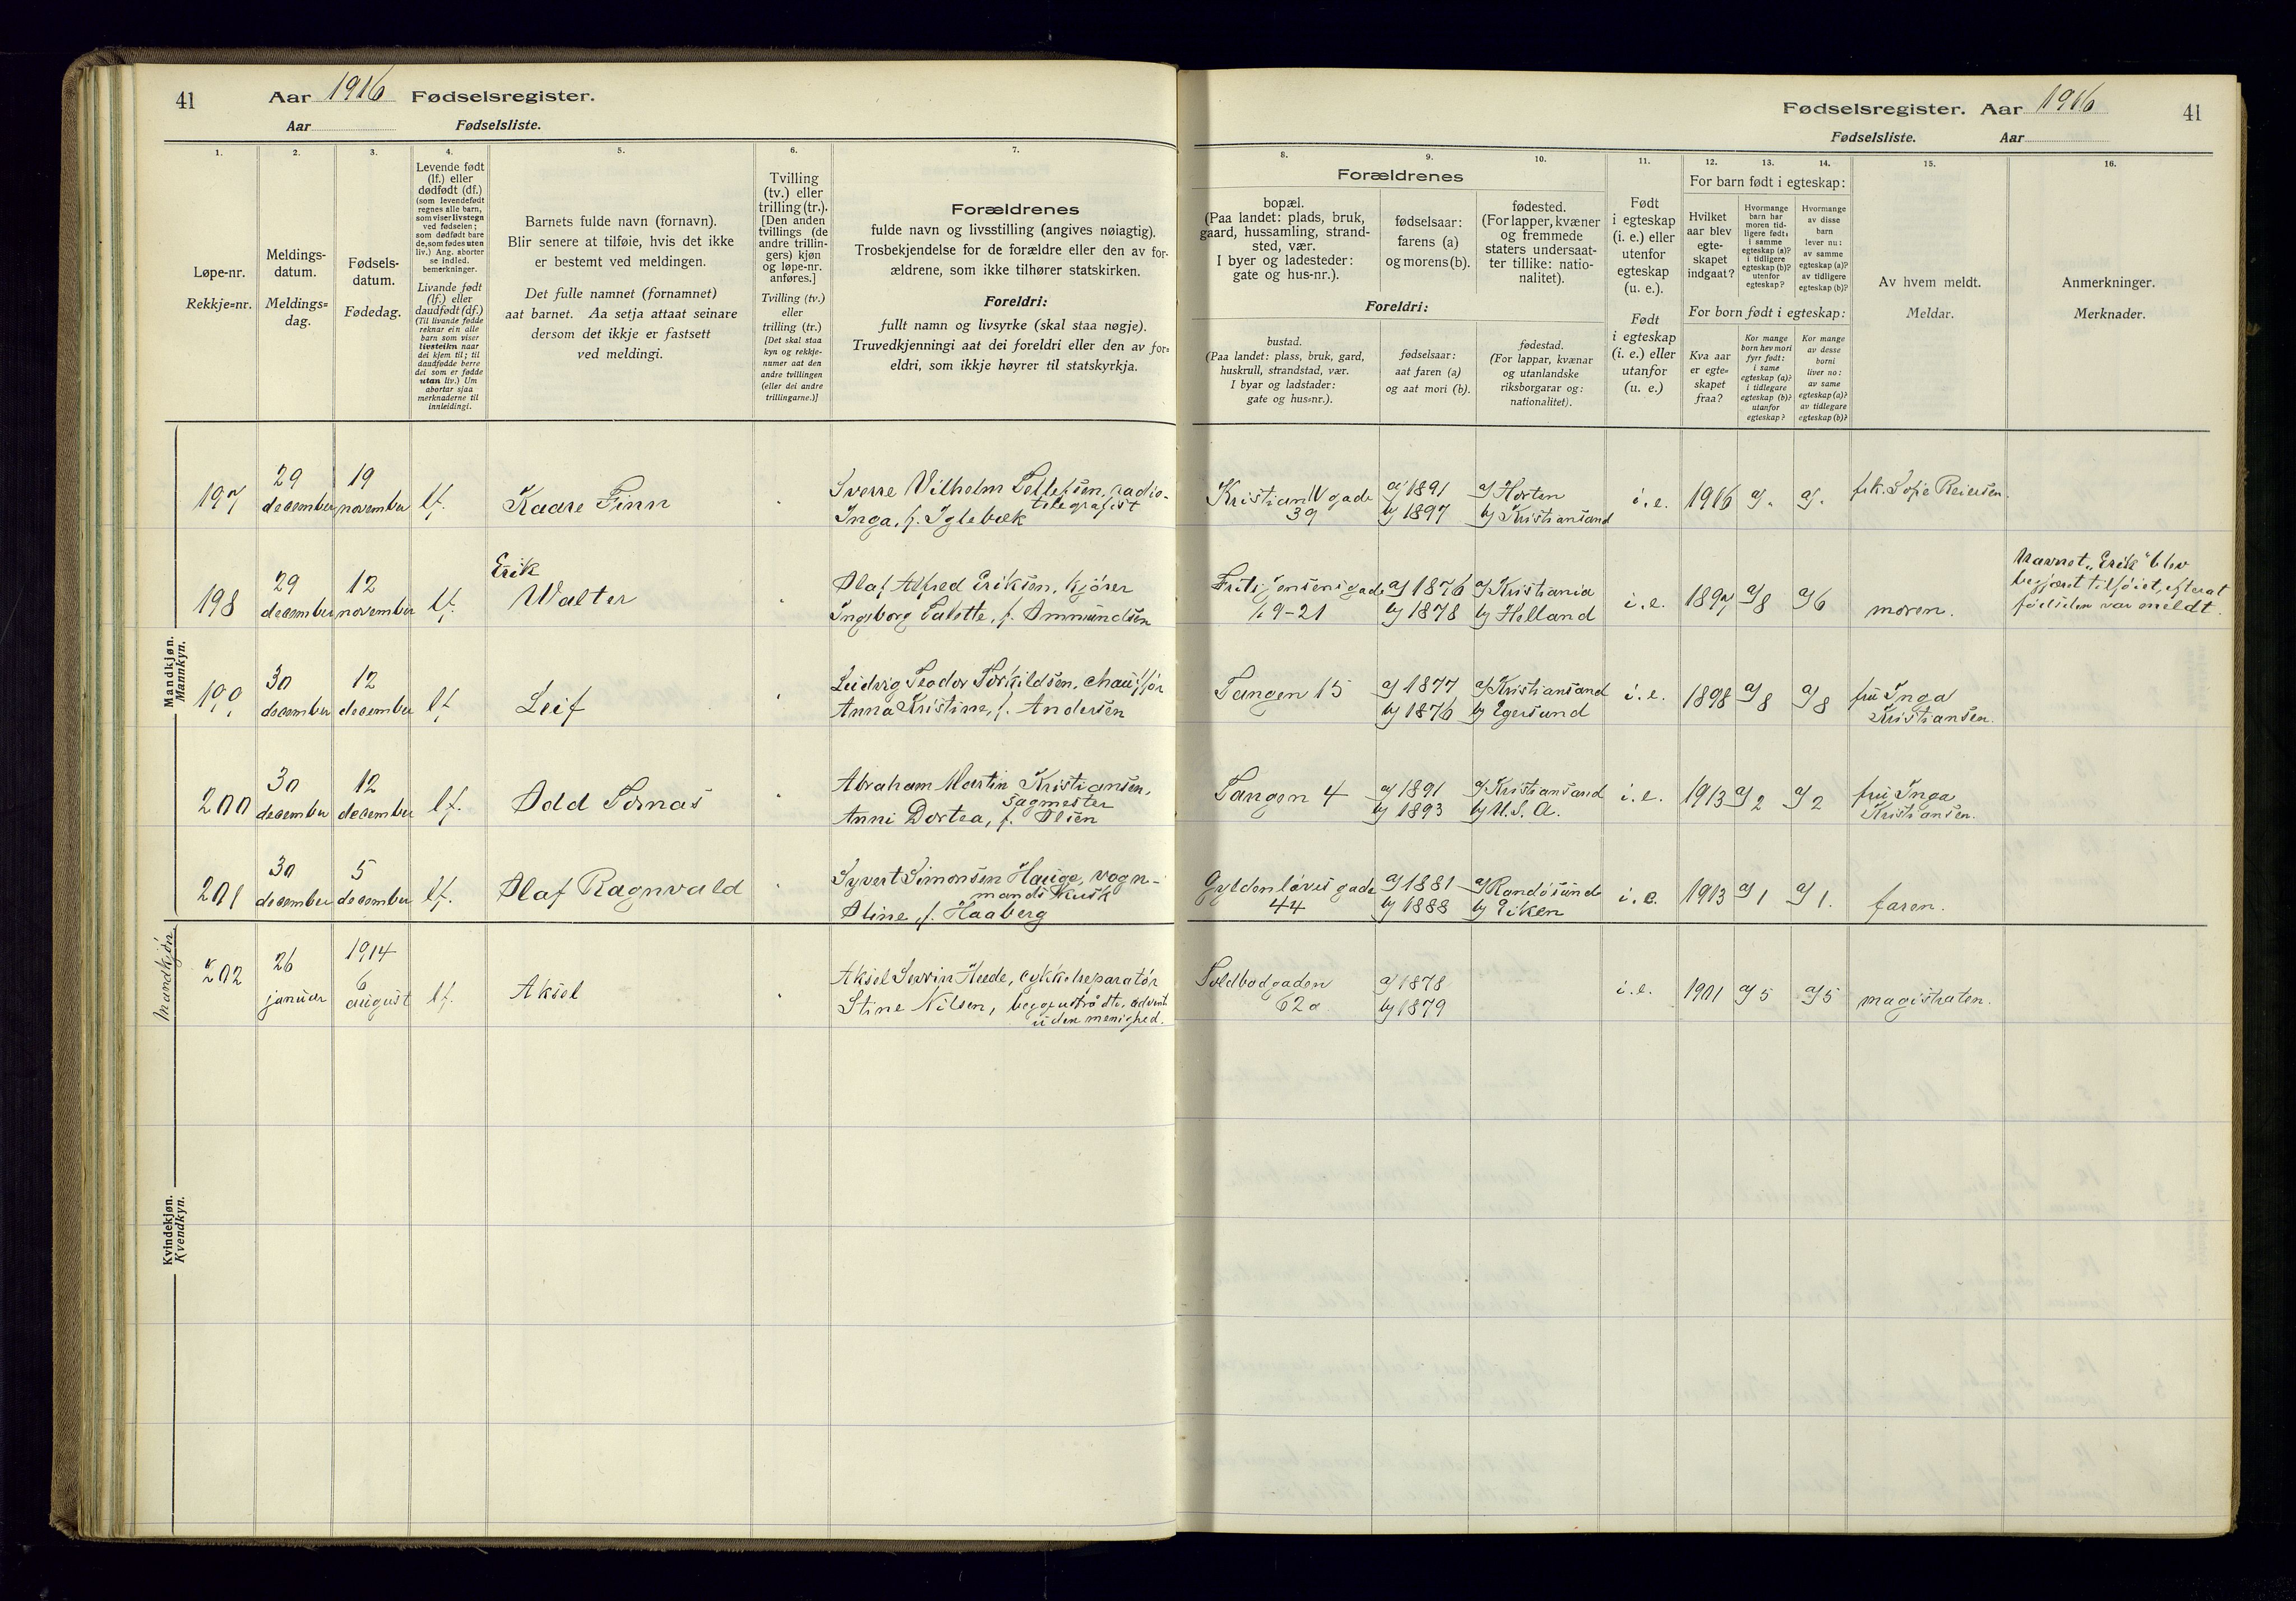 41 Aar 1916 Fødselsregister.
Aar Fødselsliste.
1.
2.
3.
4.
5.
6.
7.
Løpe-nr.
Rekkje-nr.
Meldings-
datum.
Meldings-
dag.
Fødsels-
datum.
Fødedag.
Levende født
(lf.) eller
dødfødt (df.)
(som levendefødt
regnes alle barn,
som viser livstegn
ved fødselen;
som dødfødt bare
de, som fødes uten
liv.) Ang. aborter
se indled.
bemerkninger.
Livande født
(lf.) eller
daudfødt (df.)
(Til livande fødde
reknar ein alle
barn som viser
livsteikn naar
dei kjem til; til
daudfødde berre
dei som er fødde
utan liv.) Um
abortar sjaa
merknaderne til
innleidingi.
Barnets fulde navn (fornavn).
Blir senere at tilføie, hvis det ikke
er bestemt ved meldingen.
Det fulle namnet (fornamnet)
aat barnet. Aa setja attaat seinare
dersom det ikkje er fastsett
ved meldingi.
Tvilling
(tv.) eller
trilling (tr.).
[Den anden
tvillings (de
andre trillin-
gers) kjøn
og løpe-nr.
anføres.]
Tvilling (tv.)
eller
trilling (tr.)
[Det skal staa
kyn og rekkje-
numer aat den
andre tvillingen
(eller dei andre
trillingarne.)]
Forældrenes
fulde navn og livsstilling (angives nøiagtig).
Trosbekjendelse for de forældre eller den av for-
ældrene, som ikke tilhører statskirken.
Foreldri:
fullt namn og livsyrke (skal staa nøgje).
Truvedkjenningi aat dei foreldri eller den av for-
eldri, som ikkje høyrer til statskyrkja.
Mandkjøn.
Mannkyn.
197 29 december 19 november lf. Kaare Finn
Sverre Vilhelm Tellefsen, radio-
telegrafist
Inga, f. Iglebæk
198 29 december 12 november lf. Erik
Walter
Olaf Alfred Eriksen, kjører
Ingeborg Talette, f. Ommundsen
199 30 december 12 december lf. Leif
Ludvig Teodor Torkildsen, chauffør
Anna Kristine, f. Andersen
200 30 december 12 december lf. Odd Tomas
Abraham Martin Kristiansen,
sagmester
Anni Dortea, f. Olsen
201 30 december 5 december lf. Olaf Ragnvald
Syvert Simonsen Hauge, vogn-
mands kusk
Oline, f. Haaberg
Mandkjøn
202 26 januar 1914 6 august lf. Aksel
Aksel Severin Heede, cykkelreparatør
Stine Nilsen, begge utrådte, advent
uden menighed.
Kvindekjøn.
Kvendkyn.
Fødselsregister. Aar 1916 41
Fødselsliste. Aar
8.
9.
10.
11.
12.
13.
14.
15.
16.
Forældrenes
bopæl.
(Paa landet: plads, bruk,
gaard, hussamling, strand-
sted, vær.
I byer og ladesteder:
gate og hus-nr.).
fødselsaar:
farens (a)
og morens (b).
fødested.
(For lapper, kvæner
og fremmede
staters undersaat-
ter tillike: natio-
nalitet).
Foreldri:
bustad.
(Paa landet: plass, bruk, gard,
huskrull, strandstad, vær.
I byar og ladstader:
gate og hus-nr.).
fødselsaar:
aat faren (a)
og aat mori (b).
fødestad.
(For lappar, kvænar
og utanlandske
riksborgarar og:
nationalitet).
Født
i egteskap
(i. e.) eller
utenfor
egteskap
(u. e.).
Født
i egteskap
(i. e.) eller
utanfor
(u. e.)
For barn født i egteskap:
Hvilket
aar blev
egte-
skapet
indgaat?
Hvormange
barn har
moren tid-
ligere født:
i samme
egteskap (a)?
i tidligere
egteskap (b)?
utenfor
egteskap?
Hvormange
av disse
barn
lever nu:
av samme
egteskap (a)?
av tidligere
egteskap (b)?
For born født i egteskap:
Kva aar
er egte-
skapet
fraa?
Kor mange
born hev mori
fyrr født:
i same
egteskap (a)?
i tidlegare
egteskap (b)?
utanfor
egteskap?
Kor mange
av desse
borni
liver no:
av same
egteskap (a)?
av tidlegare
egteskap (b)?
Av hvem meldt.
Meldar.
Anmerkninger.
Merknader.
Kristian IV gade a) 1891 a) Horten i. e. 1916 a) - a) - frk. Sofie Reiersen.
39 b) 1897 b) Kristiansand
Navnet "Erik" blev
begjært tilføiet, efterat
fødslen var meldt.
Frits Jensensgade a) 1876 a) Kristiania i. e. 1897 a) 8 a) 6 moren.
19-21 b) 1878 b) Helland
Tangen 15 a) 1877 a) Kristiansand i. e. 1898 a) 8 a) 8 fru Inga
b) 1876 b) Egersund Kristiansen.
Tangen 4 a) 1891 a) Kristiansand i. e. 1913 a) 2 a) 2 fru Inga
b) 1893 b) U. S. A. Kristiansen.
Gyldenløvesgade a) 1881 a) Randøsund i. e. 1913 a) 1 a) 1. faren.
44 b) 1888 b) Eiken
Toldbodgaden a) 1878 i. e. 1901 a) 5 a) 5 magistraten.
62a b) 1879